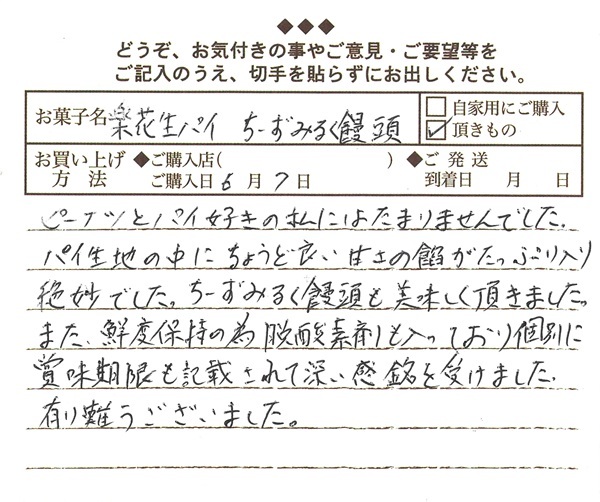 ◆◆◆
どうぞ、お気付きの事やご意見・ご要望等を
ご記入のうえ、切手を貼らずにお出しください。
お菓子名 楽花生パイ ちーずみるく饅頭
自家用にご購入
頂きもの
お買い上げ方法 ◆ご購入店( )
ご購入日 6月7日
◆ご発送
到着日 月 日
ピーナツとパイ好きの私にはたまりませんでした。
パイ生地の中にちょうど良い甘さの餡がたっぷり入り
絶妙でした。ちーずみるく饅頭も美味しく頂きました。
また、鮮度保持の為脱酸素剤も入っており個別に
賞味期限も記載されて深い感銘を受けました。
有り難うございました。